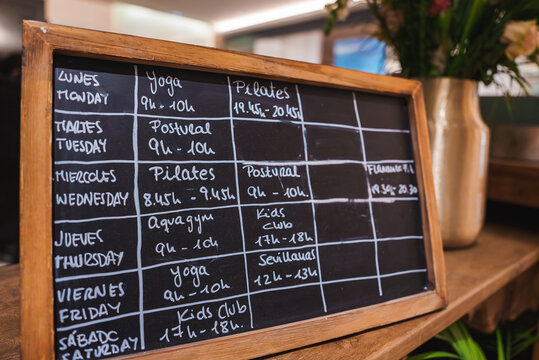 LUNES
MONDAY
Yoga
9h - 10h
Pilates
19.45h - 20.45h
MARTES
TUESDAY
Postural
9h - 10h
MIERCOLES
WEDNESDAY
Pilates
8.45h - 9.45h
Postural
9h - 10h
19.30h - 20.30
JUEVES
THURSDAY
Aquagym
9h - 10h
Kids
Club
17h - 18h
VIERNES
FRIDAY
Yoga
9h - 10h
Sevillanas
12h - 13h
SÁBADO
SATURDAY
Kids Club
17h - 18h.